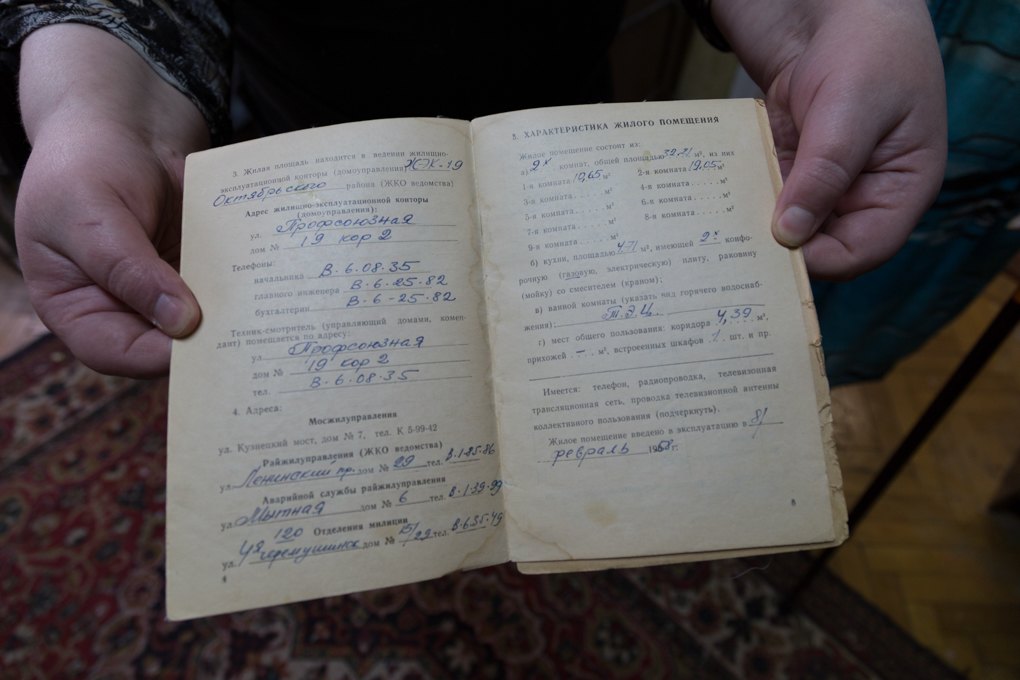 3. Жилая площадь находится в ведении жилищно-
эксплуатационной конторы (домоуправления) ЖЭК-19
Октябрьского района (ЖКО ведомства)
Адрес жилищно-эксплуатационной конторы
(домоуправления):
ул. Профсоюзная
дом № 19 кор 2
Телефоны:
начальника В-6-08-35
главного инженера В-6-25-82
бухгалтерии В-6-25-82
Техник-смотритель (управляющий домами, комен-
дант) помещается по адресу:
ул. Профсоюзная
дом № 19 кор 2
тел. В-6-08-35
4. Адреса:
Мосжилуправления
ул. Кузнецкий мост, дом № 7, тел. К 5-99-42
Райжилуправления (ЖКО ведомства)
ул. Ленинский пр. дом № 29 тел. В-1-85-86
Аварийной службы райжилуправления
ул. Мытная дом № 6 тел. В-1-39-99
120 Отделения милиции
ул. дом № тел. В-6-35-49
4
5. ХАРАКТЕРИСТИКА ЖИЛОГО ПОМЕЩЕНИЯ
Жилое помещение состоит из:
а) 2х комнат, общей площадью м², из них
1-я комната м² 2-я комната 19,05 м²
3-я комната . . . . . м² 4-я комната . . . . . м²
5-я комната . . . . . м² 6-я комната . . . . . м²
7-я комната . . . . . м² 8-я комната . . . . . м²
9-я комната . . . . . м²
б) кухни, площадью м², имеющей 2х конфо-
рочную (газовую, электрическую) плиту, раковину
(мойку) со смесителем (краном);
в) ванной комнаты (указать вид горячего водоснаб-
жения); Т.Э.Ц.
г) мест общего пользования: коридора 4,39 м²,
прихожей . – . м², встроенных шкафов . 1 . шт. и пр.
Имеется: телефон, радиопроводка, телевизионная
трансляционная сеть, проводка телевизионной антенны
коллективного пользования (подчеркнуть).
Жилое помещение введено в эксплуатацию в
февраль 1958 г.
8